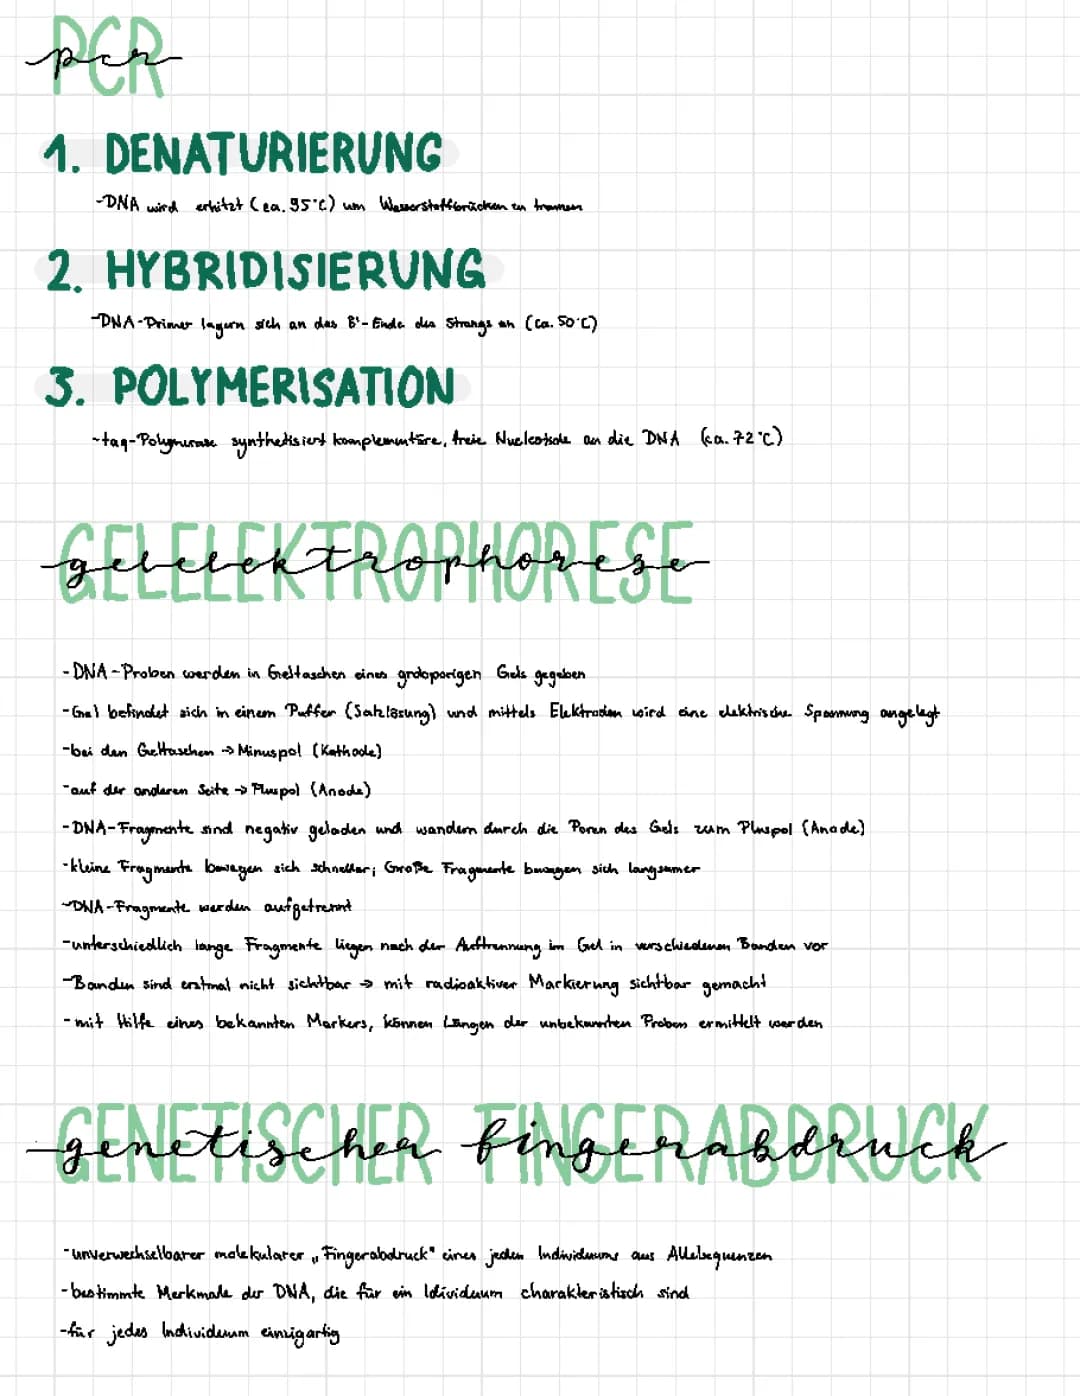 PCR
pcr
1. DENATURIERUNG
-DNA wird erhitzt (ca. 95°C) um Wasserstoffbrücken zu trennen
2. HYBRIDISIERUNG
-DNA-Primer lagern sich an das 3'-Ende des Strangs an (ca. 50°C)
3. POLYMERISATION
-taq-Polymerase synthetisiert komplementäre, freie Nucleotide an die DNA (ca. 72°C)
GELELEKTROPHORESE
gelelektrophorese
-DNA-Proben werden in Geltaschen eines grobporigen Gels gegeben
-Gel befindet sich in einem Puffer (Salzlösung) und mittels Elektroden wird eine elektrische Spannung angelegt
-bei den Geltaschen → Minuspol (Kathode)
-auf der anderen Seite → Pluspol (Anode)
-DNA-Fragmente sind negativ geladen und wandern durch die Poren des Gels zum Pluspol (Anode)
-kleine Fragmente bewegen sich schneller; Große Fragmente bewegen sich langsamer
-DNA-Fragmente werden aufgetrennt
-unterschiedlich lange Fragmente liegen nach der Auftrennung im Gel in verschiedenen Banden vor
-Banden sind erstmal nicht sichtbar → mit radioaktiver Markierung sichtbar gemacht
-mit Hilfe eines bekannten Markers, können Längen der unbekannten Proben ermittelt werden
GENETISCHER FINGERABDRUCK
genetischer fingerabdruck
-unverwechselbarer molekularer „Fingerabdruck" eines jeden Individuums aus Allelsequenzen
-bestimmte Merkmale der DNA, die für ein Idividuum charakteristisch sind
-für jedes Individuum einzigartig